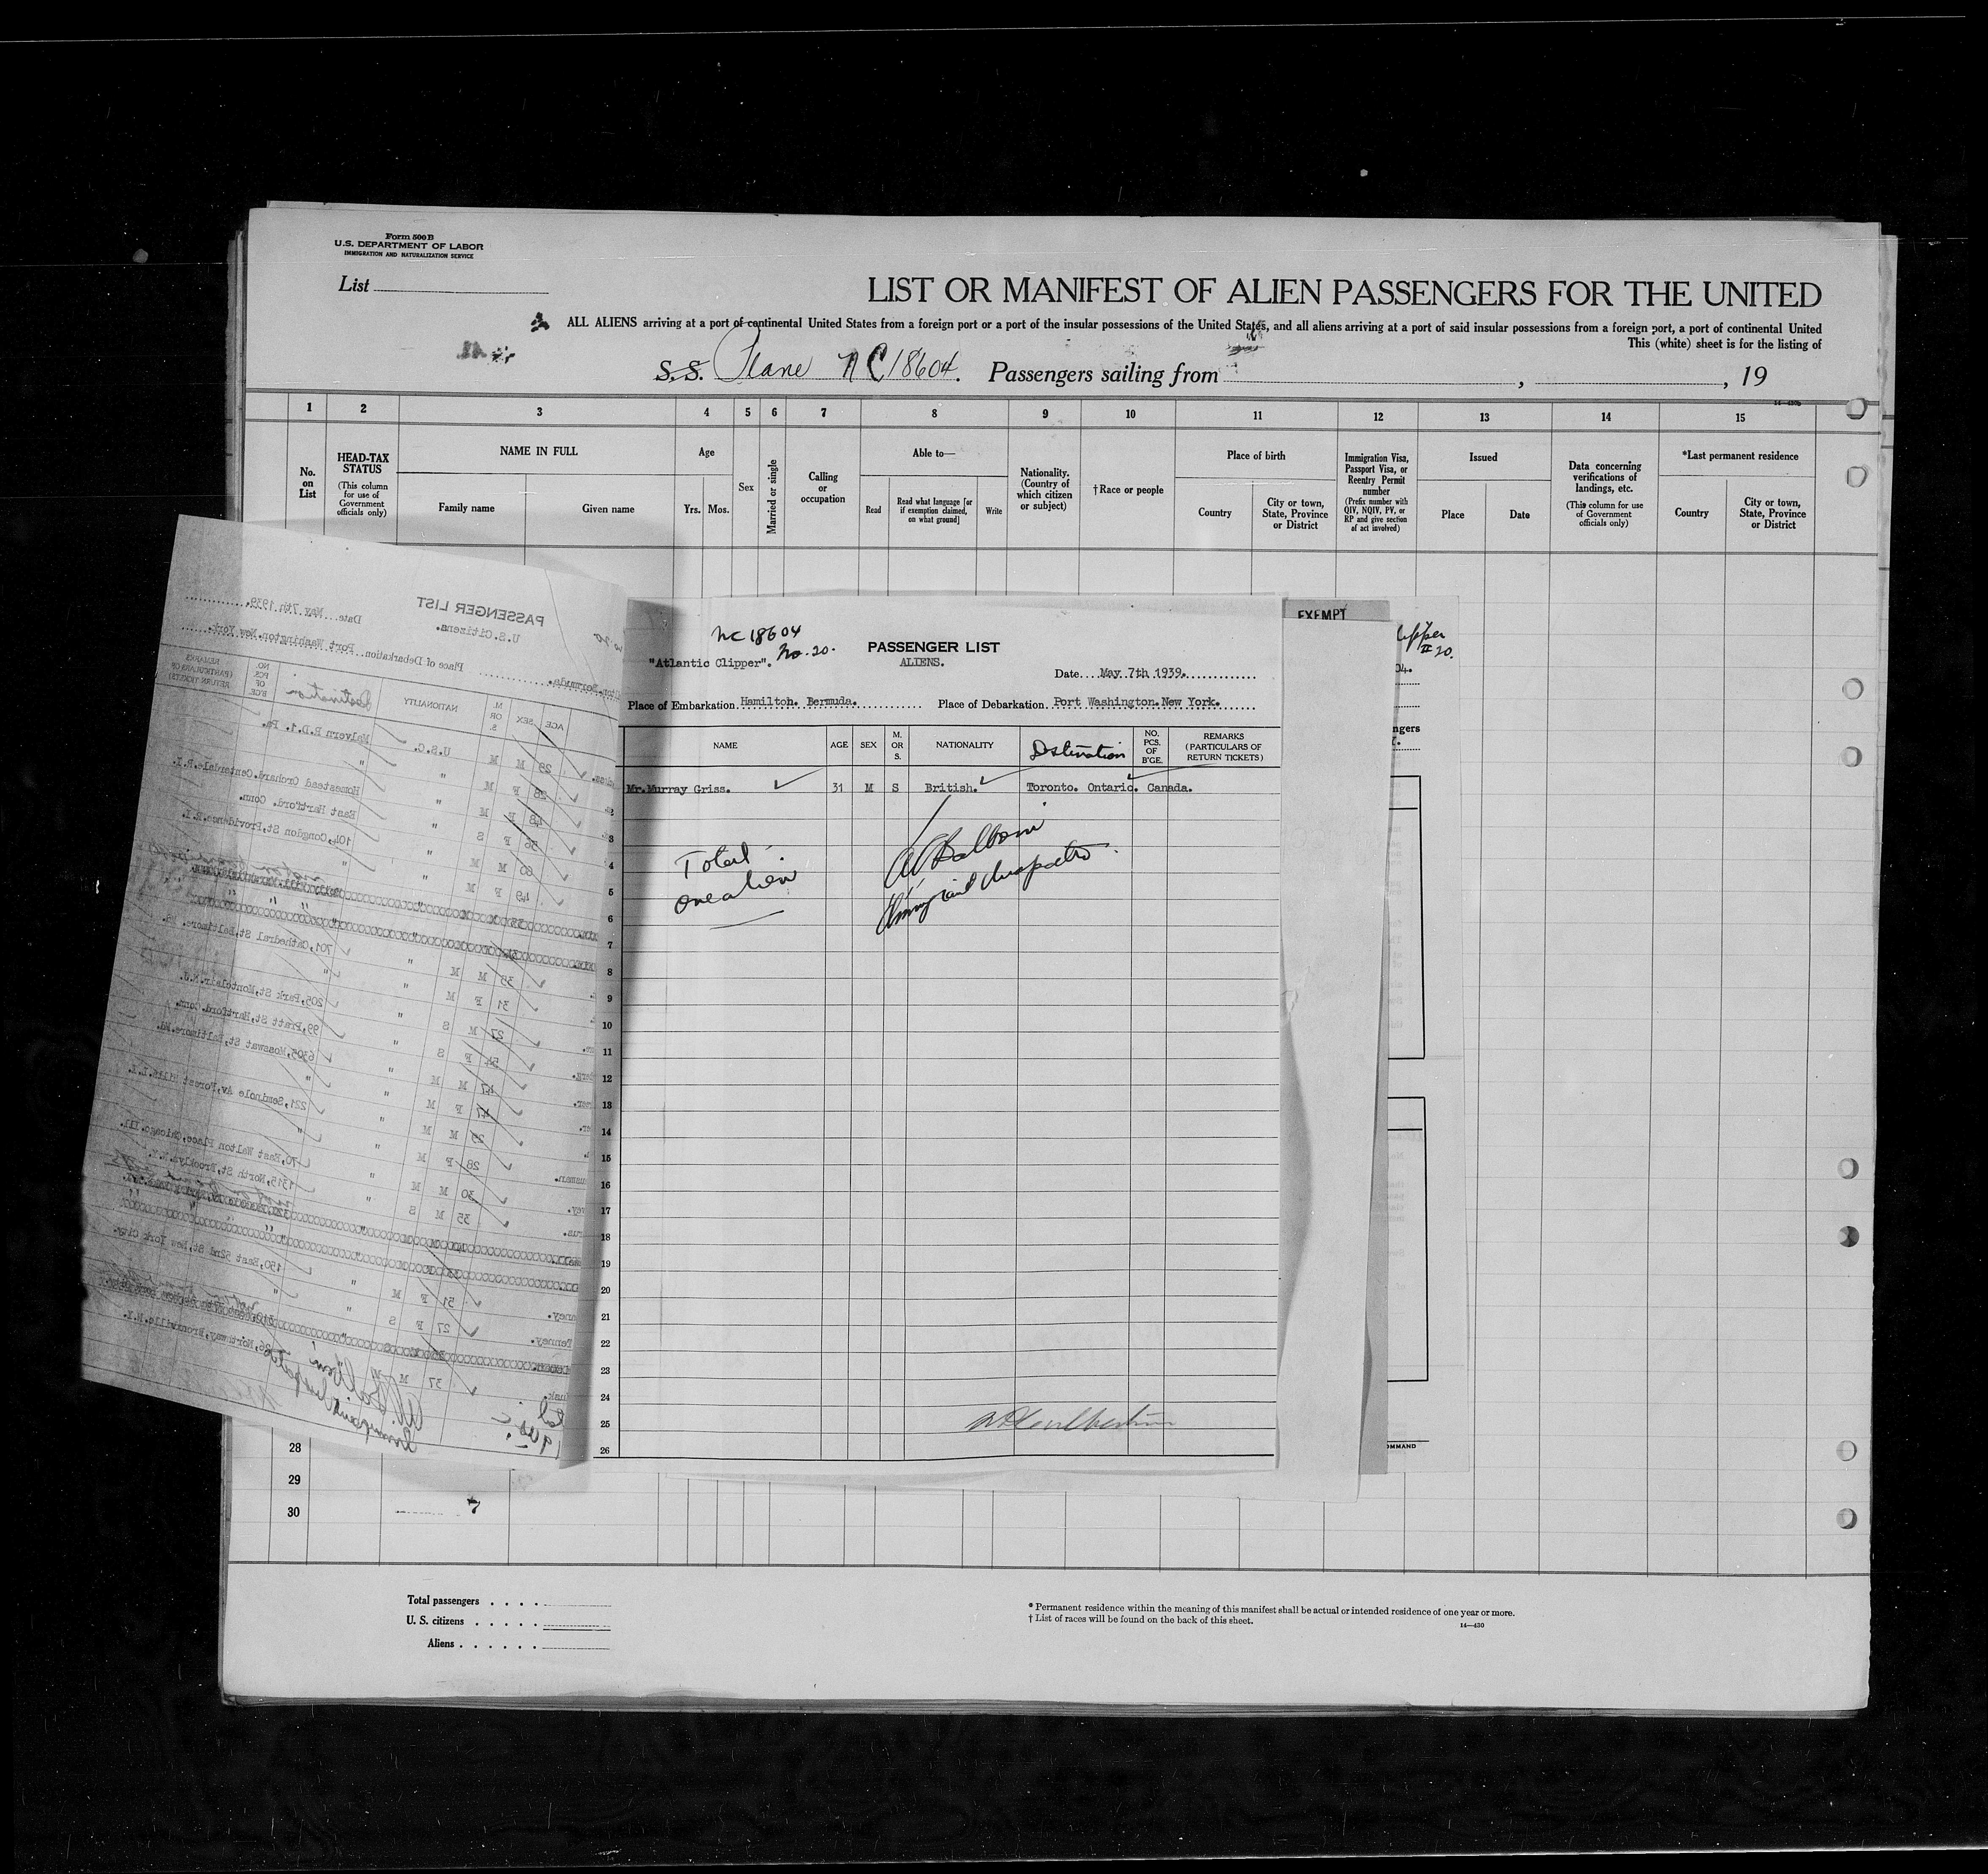 Form 500 B
U.S. DEPARTMENT OF LABOR
IMMIGRATION AND NATURALIZATION SERVICE
List
LIST OR MANIFEST OF ALIEN PASSENGERS FOR THE UNITED
ALL ALIENS arriving at a port of continental United States from a foreign port or a port of the insular possessions of the United States, and all aliens arriving at a port of said insular possessions from a foreign port, a port of continental United
This (white) sheet is for the listing of
S.S. Plane NC18604. Passengers sailing from , , 19
14—430b
1 2 3 4 5 6 7 8 9 10 11 12 13 14 15
No. on List
HEAD-TAX STATUS
(This column for use of Government officials only)
NAME IN FULL
Family name
Given name
Age
Yrs. Mos.
Sex
Married or single
Calling or occupation
Able to—
Read
Read what language [or if exemption claimed, on what ground]
Write
Nationality. (Country of which citizen or subject)
†Race or people
Place of birth
Country
City or town, State, Province or District
Immigration Visa, Passport Visa, or Reentry Permit number
(Prefix number with QIV, NQIV, PV, or RP and give section of act involved)
Issued
Place
Date
Data concerning verifications of landings, etc.
(This column for use of Government officials only)
*Last permanent residence
Country
City or town, State, Province or District
PASSENGER LIST
U.S.Citizens.
Date May 7th 1939.
Place of Debarkation Port Washington.New York.
AGE SEX M. OR S. NATIONALITY Destination NO. PCS. OF B'GE. REMARKS (PARTICULARS OF RETURN TICKETS)
29 M M U.S.C. Malvern R.D.1. Pa.
28 F M " "
48 F M " Homestead Orchard.Centerdale.R.I.
56 F S " East Hartford. Conn.
60 M M " 104,Congdon St,Providence.R.I.
49 F M " "
38 M M " 701,Cathedral St,Baltimore. Md.
31 F M " "
27 M S " 205,Park St,Montclair.N.J.
54 F S " 99,Pratt St,Hartford.Conn.
47 M M " 6305,Mosswat St,Baltimore.Md.
47 F M " "
29 M M " 221,Seminole Av,Forest Hills.L.I.
28 F M " "
30 M M " 70,East Walton Place,Chicago.Ill.
35 M S " 1315,North St,Brooklyn.N.Y.
51 F M " 150,East 52nd St,New York City.
27 F S " "
37 M " 86,Northway,Bronxville.N.Y.
NC 18604
"Atlantic Clipper". No. 20.
PASSENGER LIST
ALIENS.
Date May 7th 1939.
Place of Embarkation Hamilton. Bermuda.
Place of Debarkation Port Washington.New York.
NAME AGE SEX M. OR S. NATIONALITY Destination NO. PCS. OF B'GE. REMARKS (PARTICULARS OF RETURN TICKETS)
Mr.Murray Griss. 31 M S British. Toronto. Ontario. Canada.
2
3
4
5
6
7
8
9
10
11
12
13
14
15
16
17
18
19
20
21
22
23
24
25
26
Total
one alien
EXEMPT
Clipper
# 20.
04.
ngers
OMMAND
28
29
30
7
Total passengers
U. S. citizens
Aliens
* Permanent residence within the meaning of this manifest shall be actual or intended residence of one year or more.
† List of races will be found on the back of this sheet.
14—430